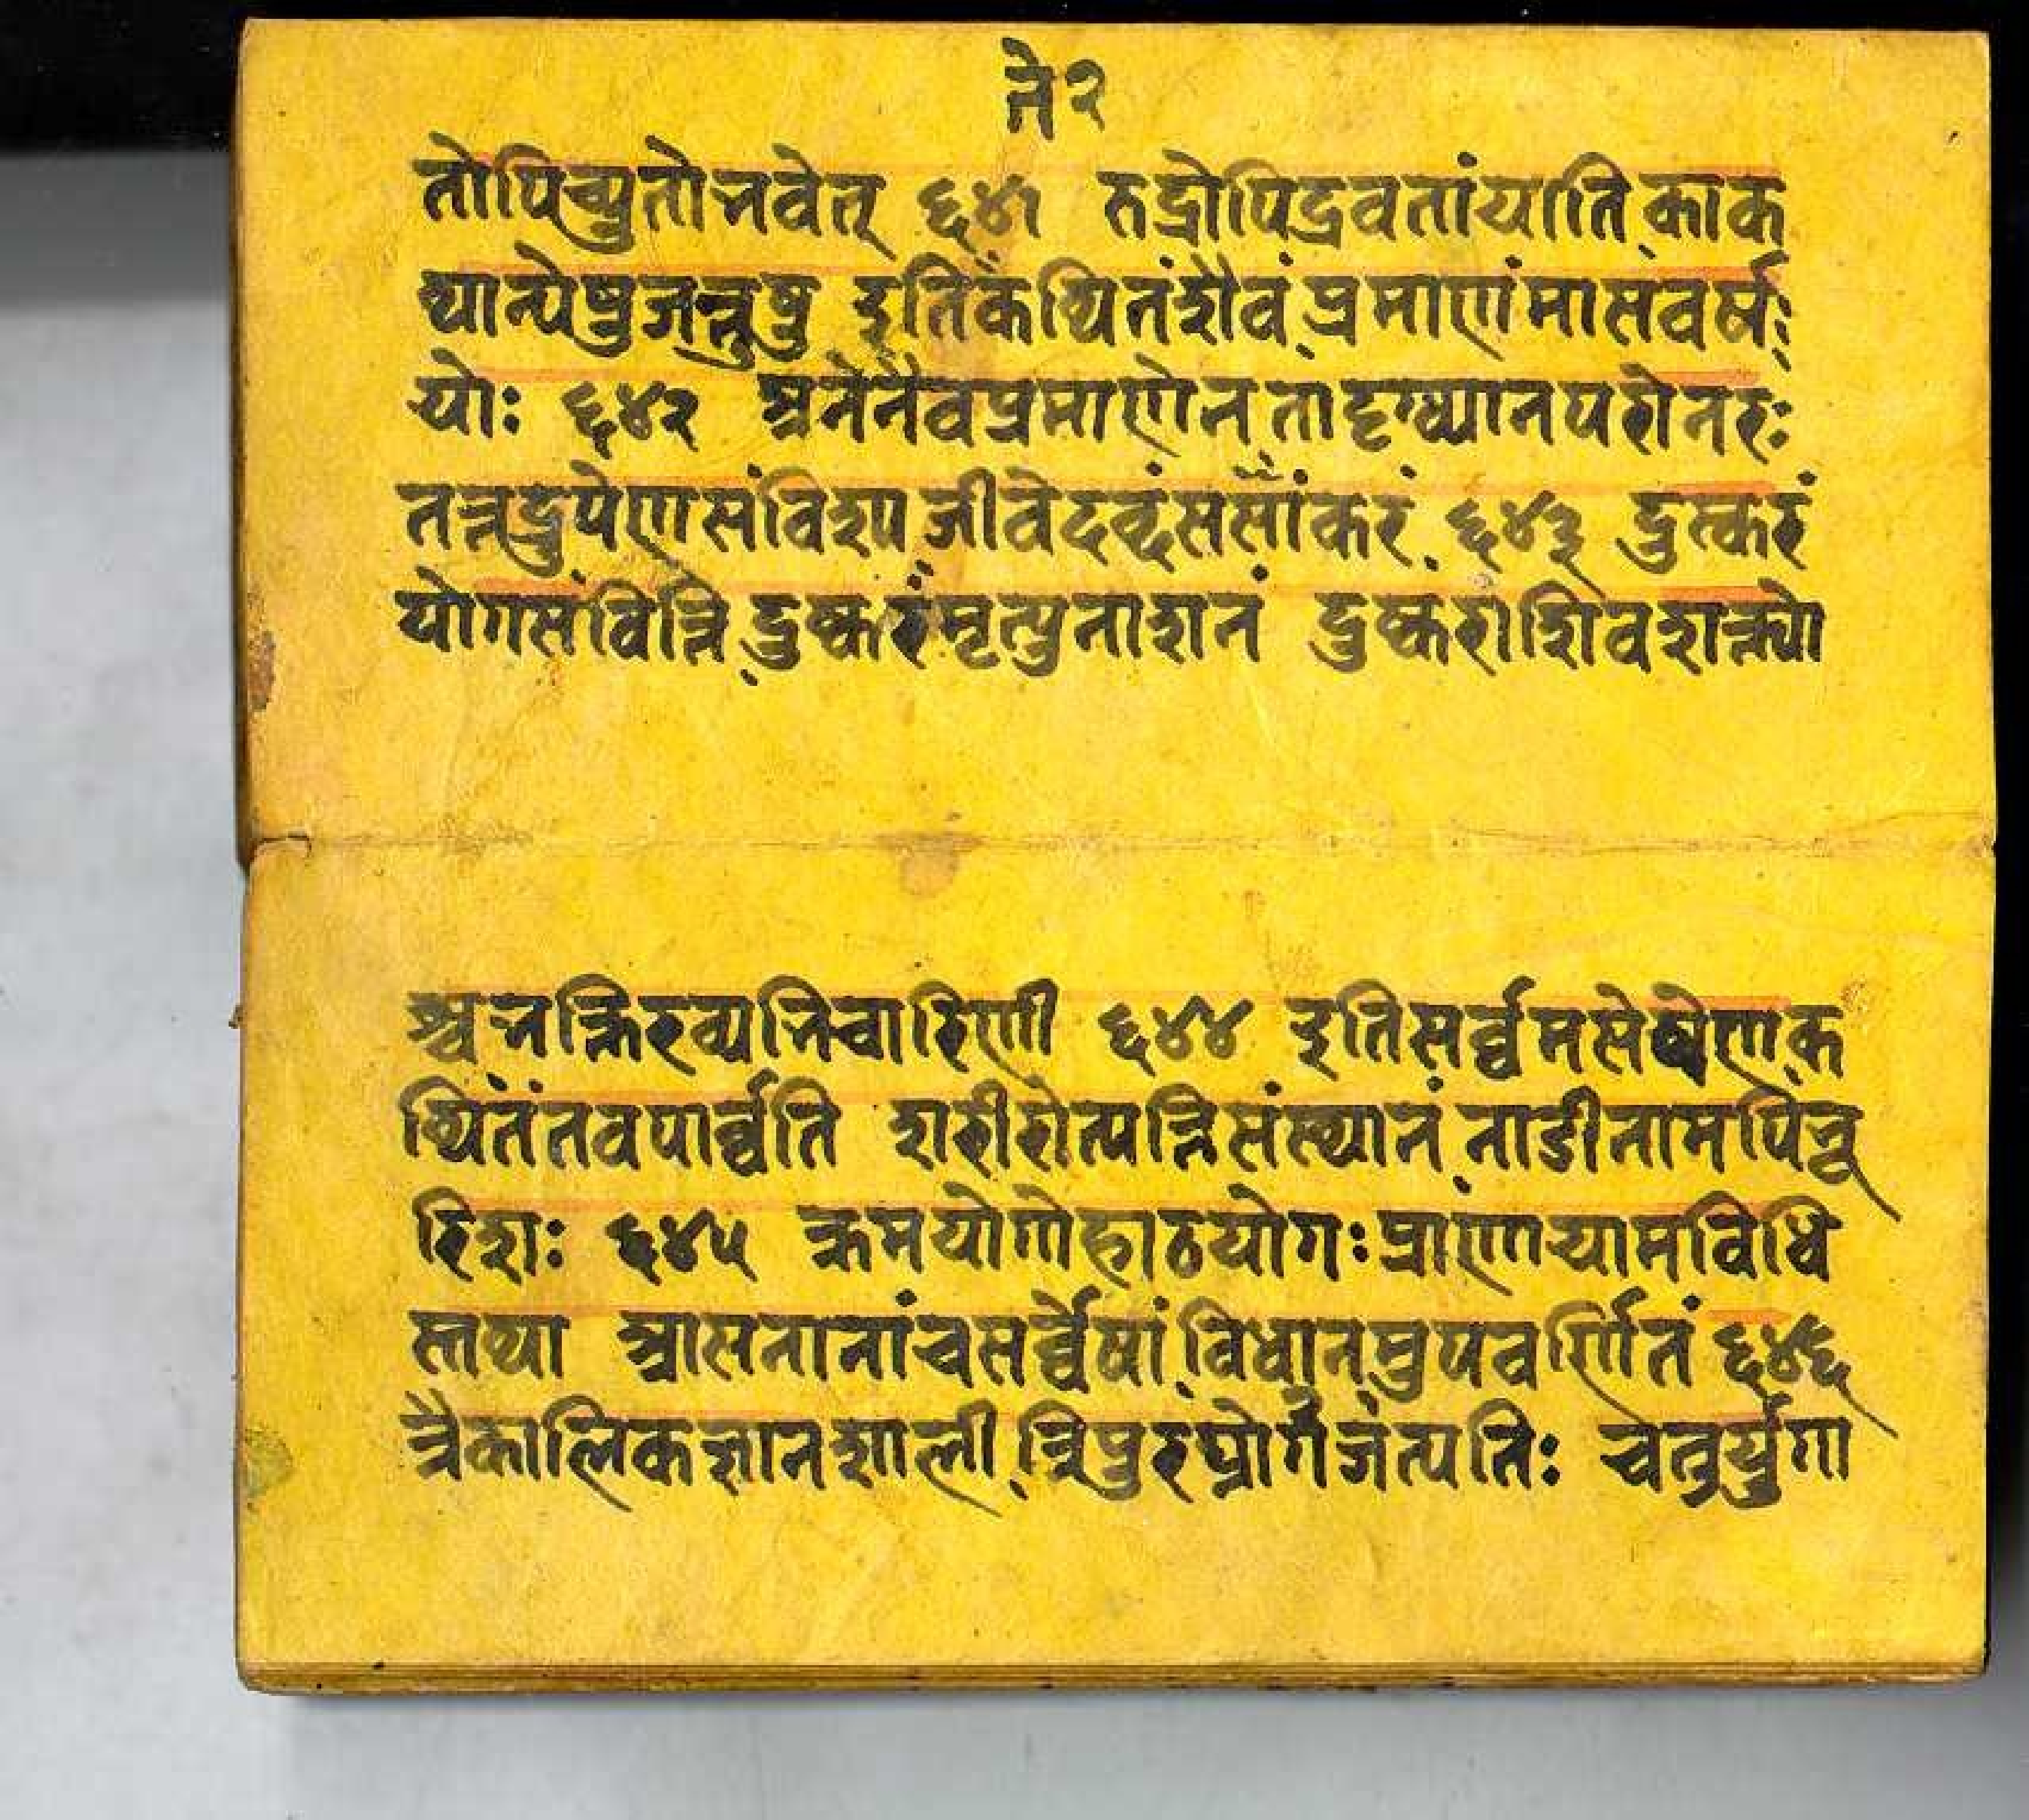 ते२
तोपिच्युतोभवेत् ६४१ रुद्रोपिद्रवतांयाति काक
थ्यान्येषुजन्तुषु इतिकथितंशैवं प्रमाणंमासवर्ष
योः ६४२ अनेनैवप्रमाणेन तादृग्ध्यानपरोनरः
तत्तद्रुपेणसंविश्य जीवेदब्दंससांकरं ६४३ दुस्करं
योगसंवित्ति दुष्करंमृत्युनाशनं दुष्कराशिवशक्त्यो
श्चभक्तिरव्यभिचारिणी ६४४ इतिसर्व्वमसेषेणक
थितंतवपार्व्वति शरीरोत्पत्तिसंस्थानं नाडीनामपिभू
रिशः ६४५ क्रमयोगोहाठयोगःप्राणायामविधि
स्तथा आसनानांचसर्व्वेषां विधानमुपवर्णितं ६४६
त्रैकालिकज्ञानशाली त्रिपुरघ्नोर्गजंत्पतिः चतुर्युगा